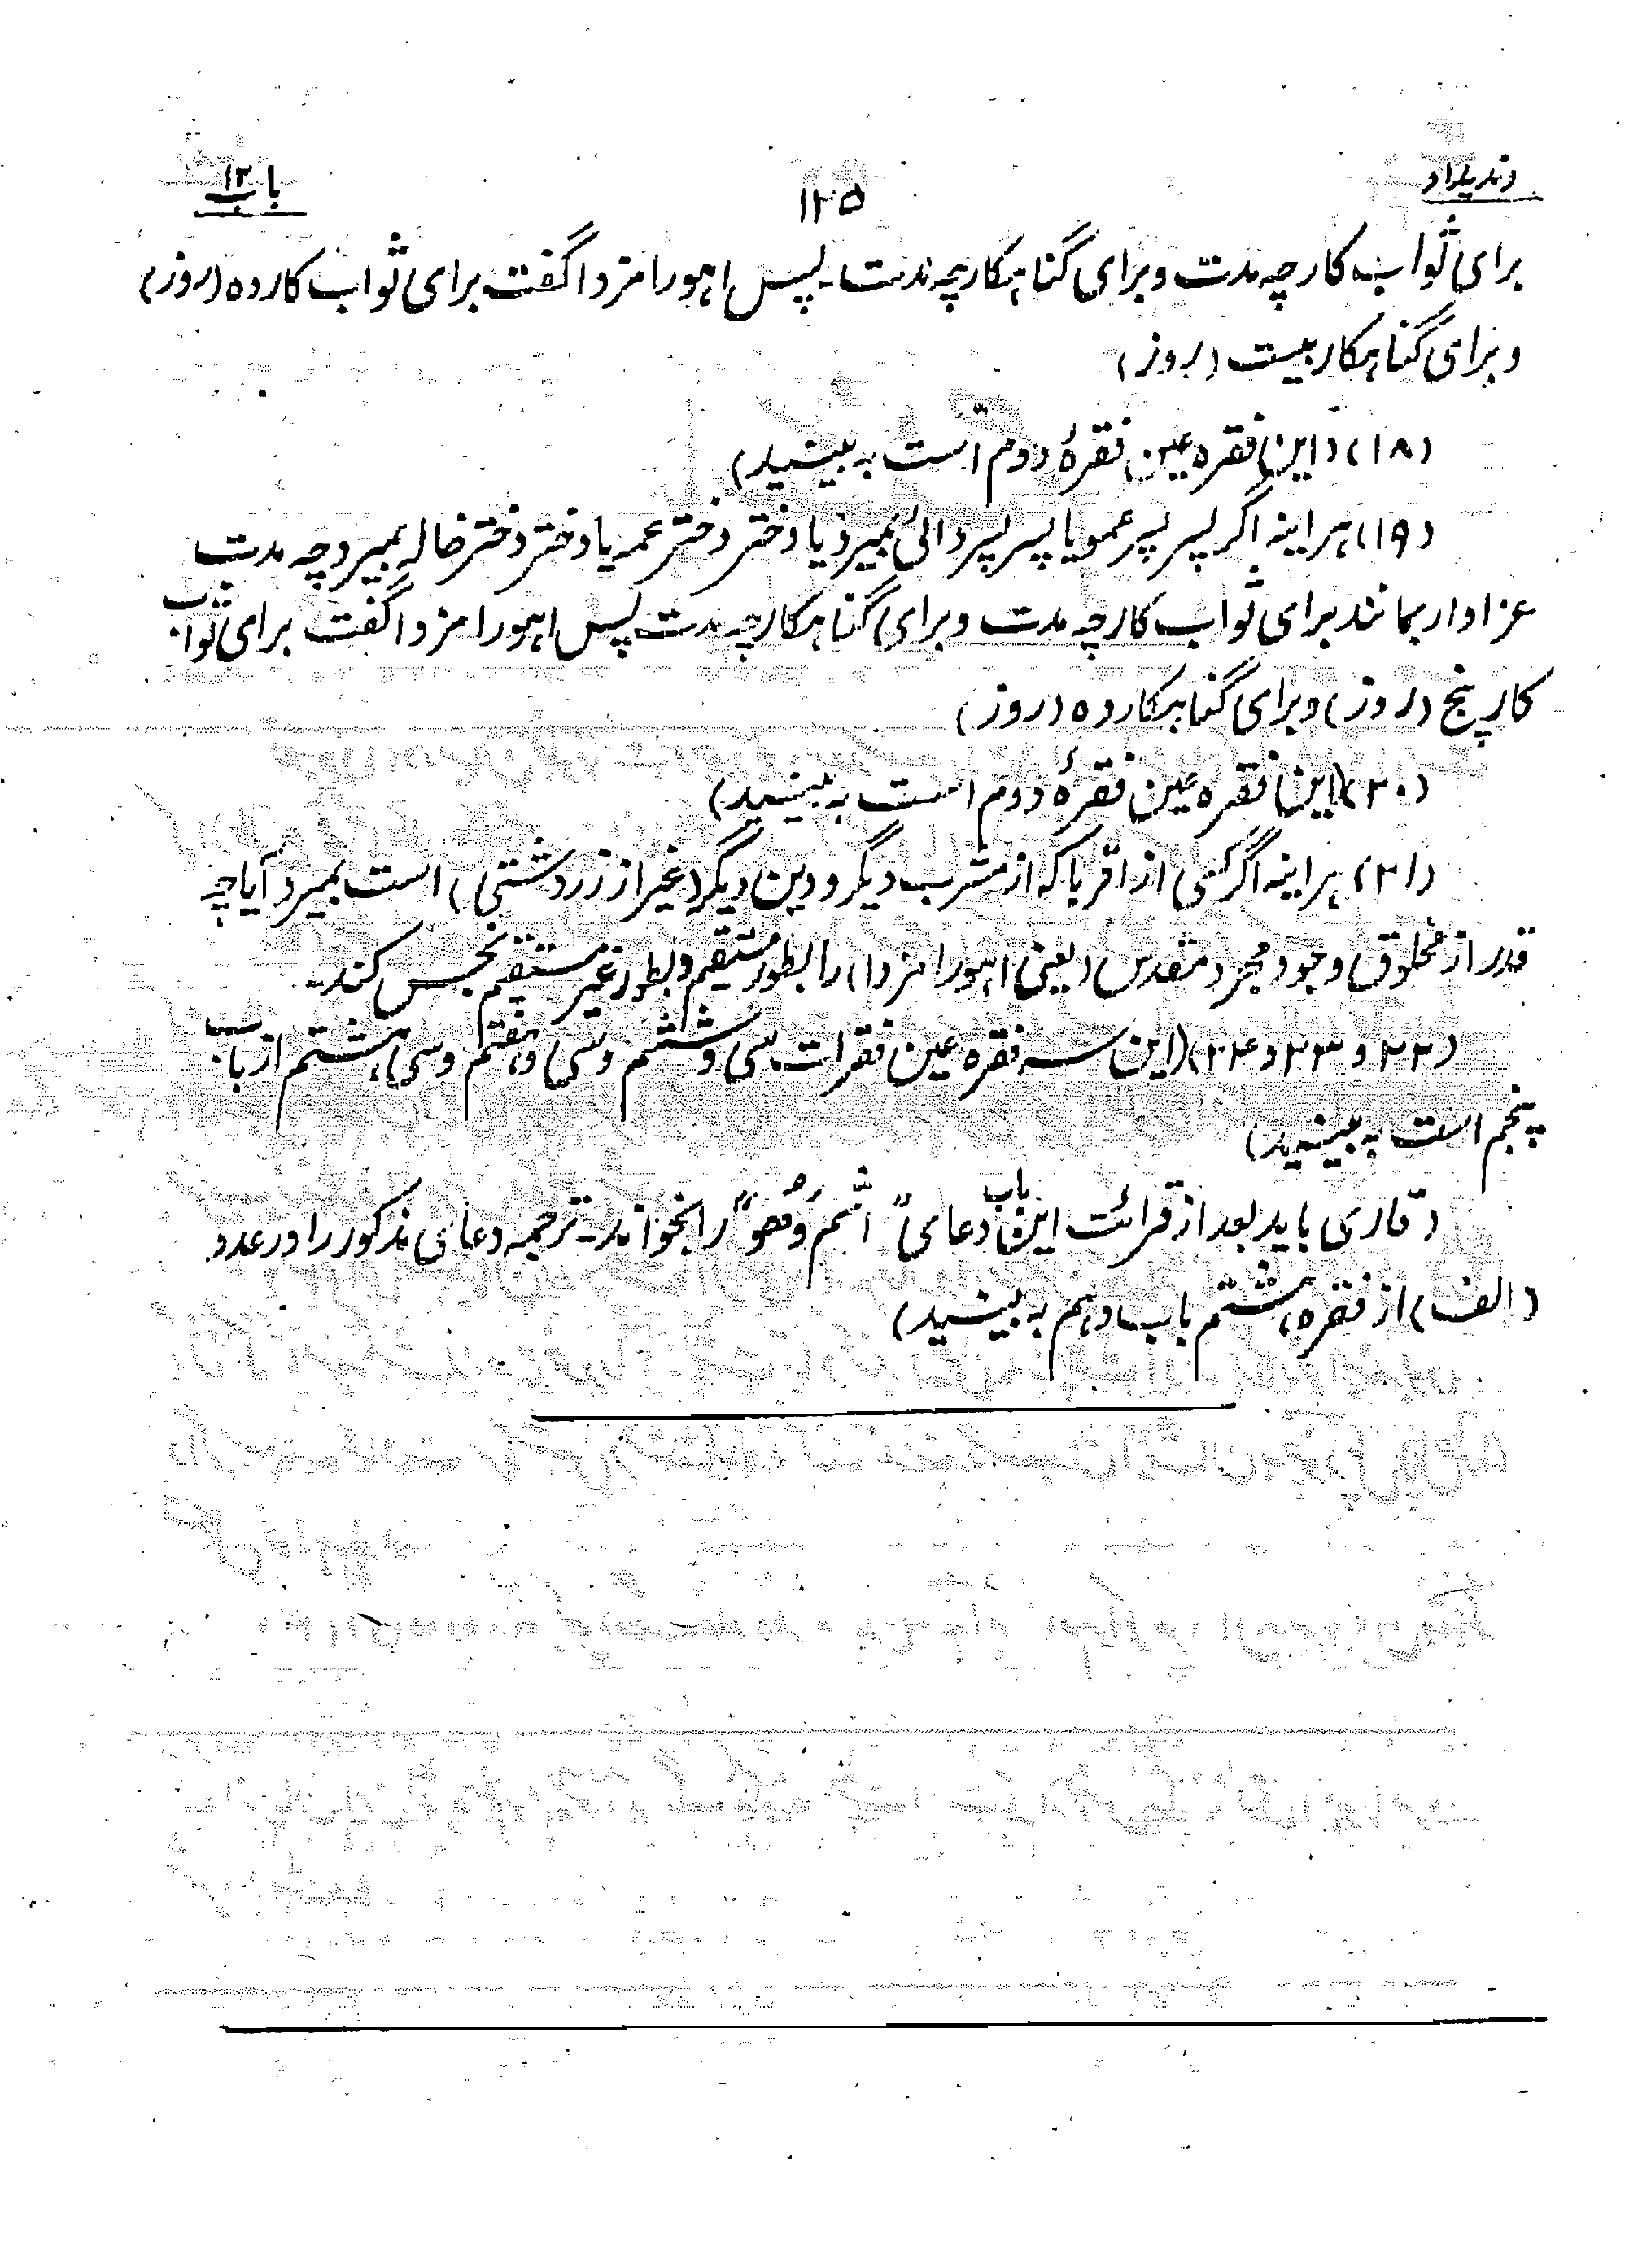 وندیداد
۱۲۵
باب ۱۲
برای ثواب کار چه مدت و برای گناهکار چه مدت ـ پس اهورا مزدا گفت برای ثواب کار ده (روز)
و برای گناهکار بیست (روز)
(۱۸) (این فقره عین فقرهٔ دوم است به بینید)
(۱۹) هر اینه اگر پسر پسر عمو یا پسر پسر دائی بمیرد یا دختر دختر عمه یا دختر دختر خاله بمیرد چه مدت
عزادار بمانند برای ثواب کار چه مدت و برای گناهکار چه مدت پس اهورا مزدا گفت برای ثواب
کار پنج (روز) و برای گناهکار ده (روز)
(۲۰) (این فقره عین فقرهٔ دوم است به بینید)
(۲۱) هر اینه اگر کسی از اقربا که از مشرب دیگر و دین دیگر (غیر از زردشتی) است بمیرد آیا چه
قدر از مخلوق وجود مجرد مقدس (یعنی اهورا مزدا) را بطور مستقیم و بطور غیر مستقیم نجس کند ـ
(۲۲ و ۲۳ و ۲۴) (این سه فقره عین فقرات سی و ششم و سی و هفتم و سی هشتم از باب
پنجم است به بینید)
(قاری باید بعد از قرائت این باب دعای "اشم وهو" را بخواند ـ ترجمه دعائی مذکور را در عدد
(الف) از فقره هشتم باب دهم به بینید)